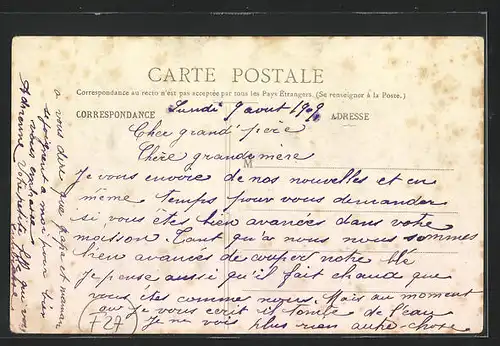 CARTE POSTALE
Correspondance au recto n'est pas acceptée par tous les Pays Étrangers. (Se renseigner à la Poste.)
CORRESPONDANCE
ADRESSE
M
Lundi 9 aout 1909
Cher grand' père
Chère grandemère
Je vous envoie de nos nouvelles et en
même temps pour vous demander
si vous étes bien avancés dans votre
moisson. Tant qu'a nous nous sommes
bien avancés de couper notre blé
Je pense aussi qu'il fait chaud que
vous étes comme nous. Mais au moment
que je vous ecrit il tombe de l'eau
Je ne vois plus rien autre chose
a vous dire que papa et maman
se joignent a moi pour bien
vous embrasse
Votre petite fille qui vous
Adrienne
F27